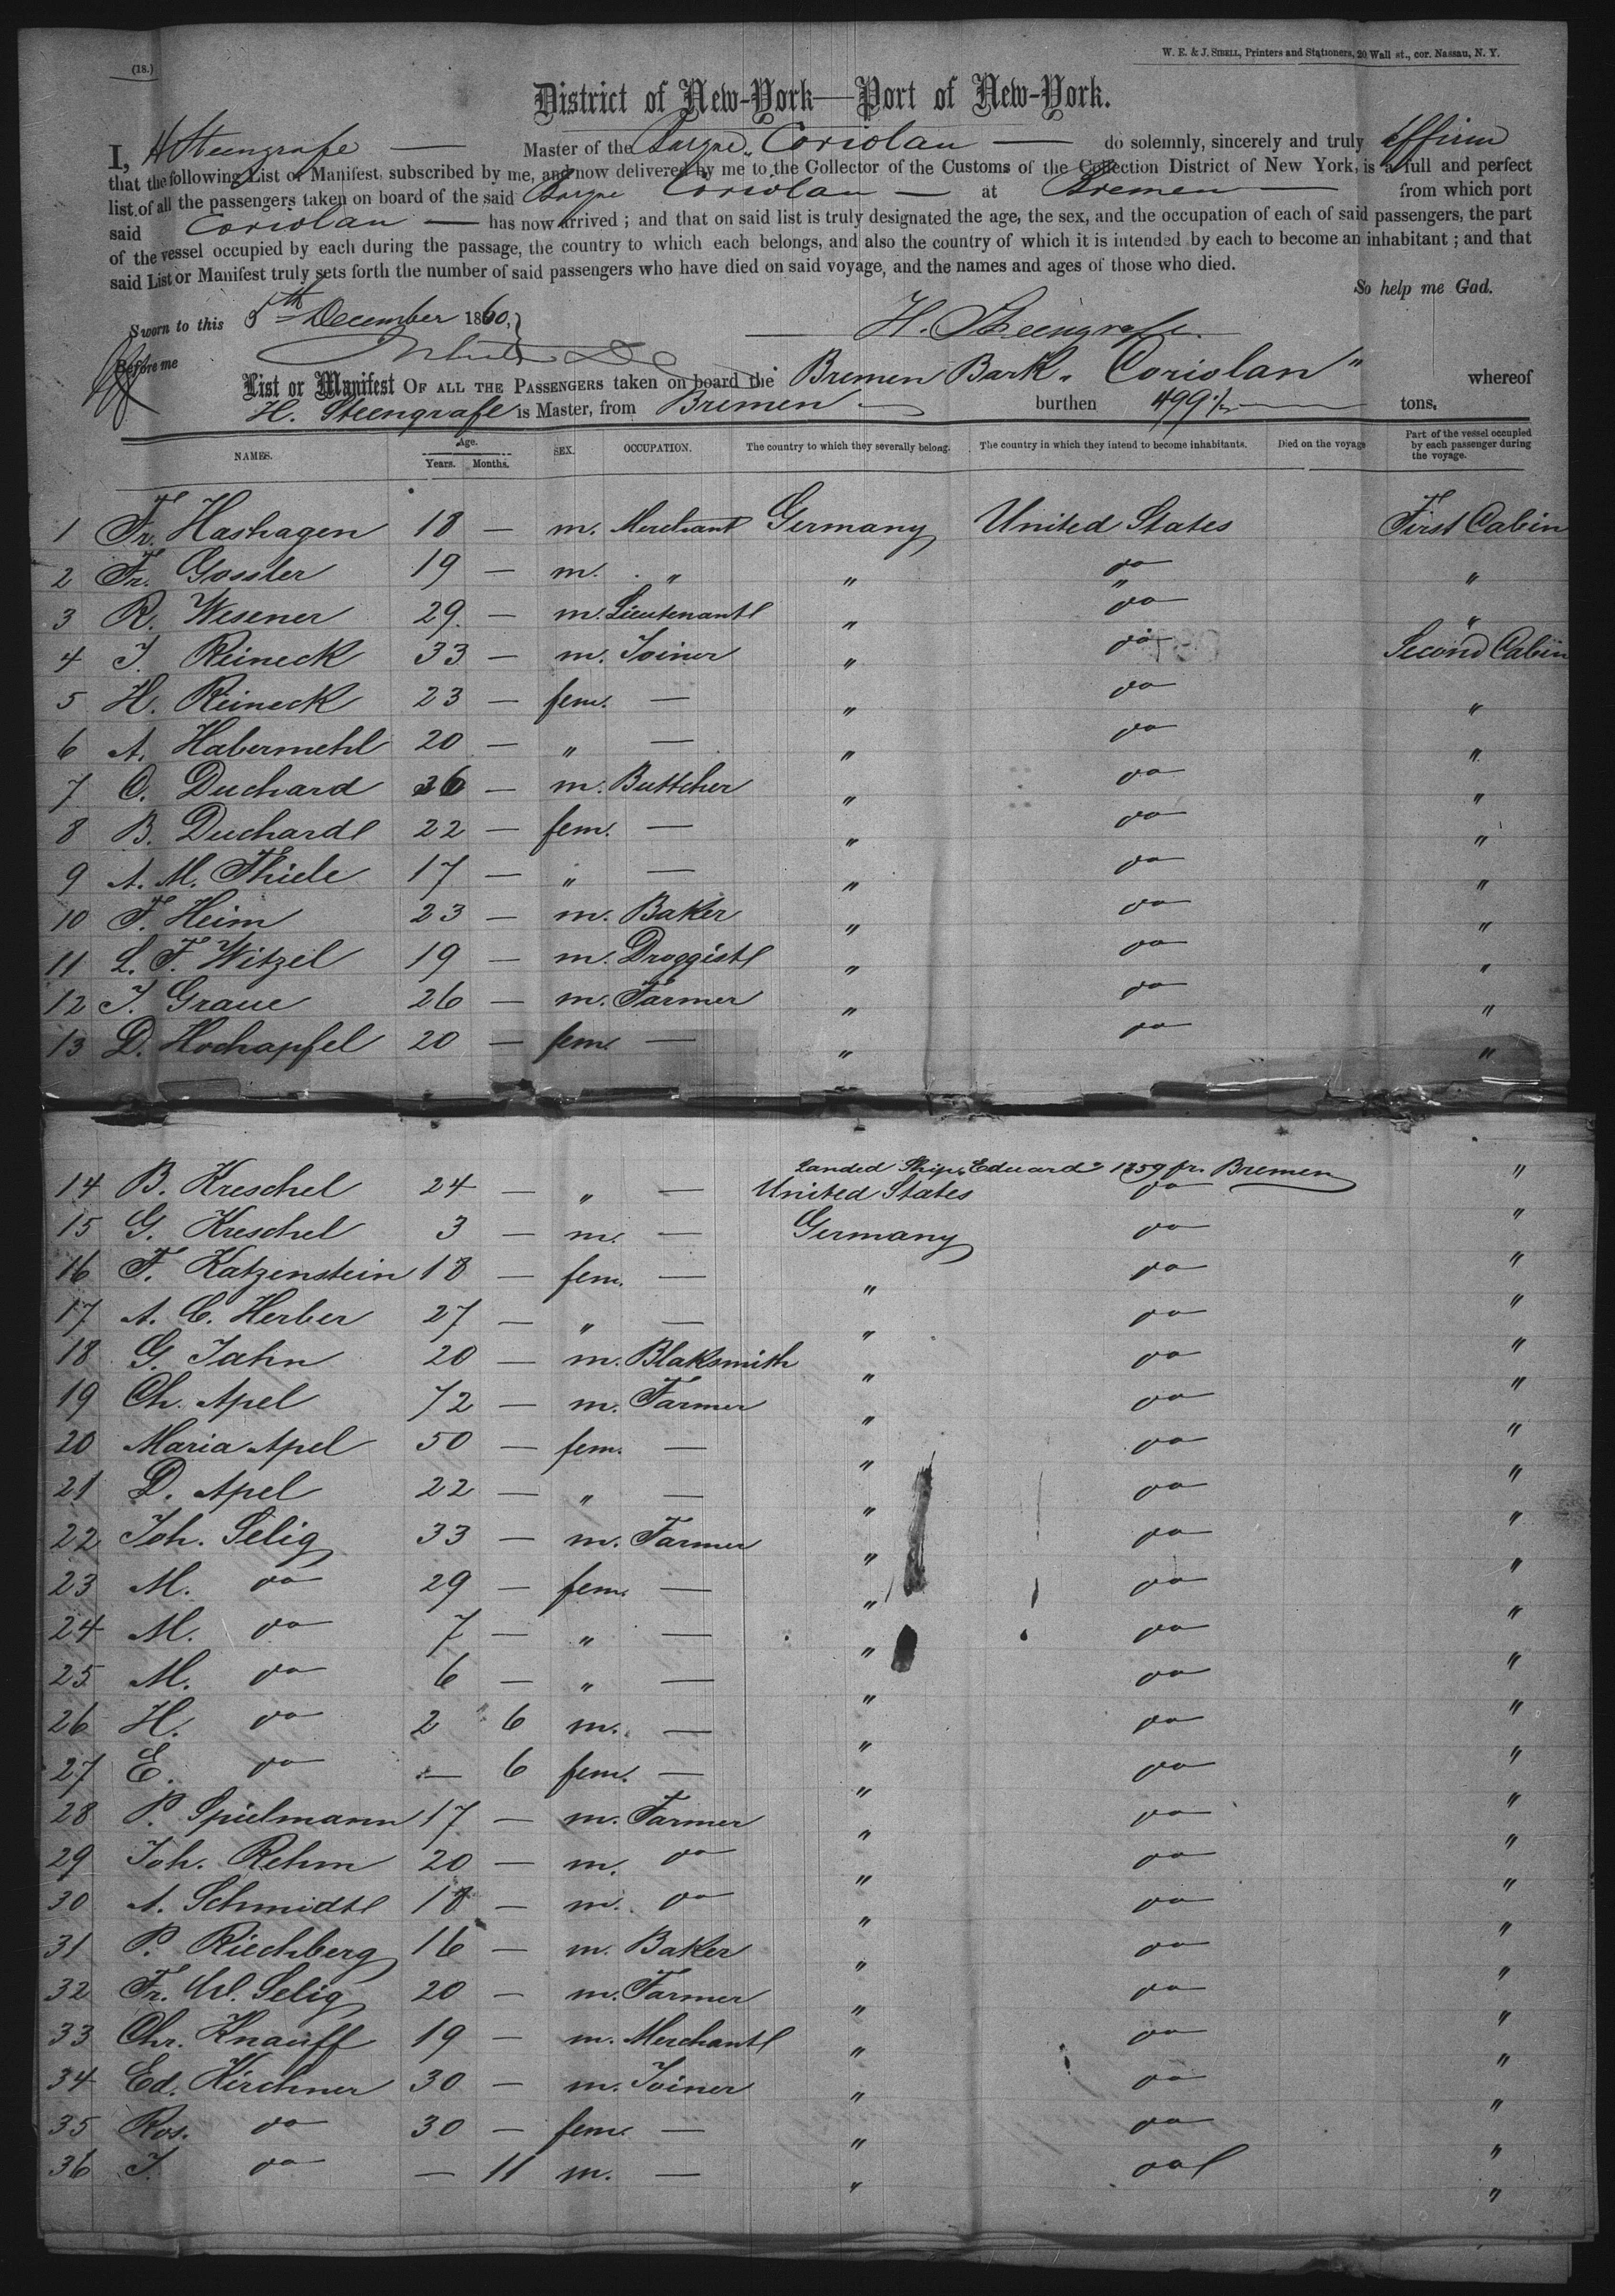 (18.)
W. E. & J. SIBELL, Printers and Stationers, 20 Wall st., cor. Nassau, N. Y.
District of New-York—Port of New-York.
I, H Steengrafe — Master of the Barque „Coriolan — do solemnly, sincerely and truly affirm
that the following List or Manifest, subscribed by me, and now delivered by me to the Collector of the Customs of the Collection District of New York, is a full and perfect
list of all the passengers taken on board of the said Barque Coriolan — at Bremen — from which port
said Coriolan — has now arrived ; and that on said list is truly designated the age, the sex, and the occupation of each of said passengers, the part
of the vessel occupied by each during the passage, the country to which each belongs, and also the country of which it is intended by each to become an inhabitant ; and that
said List or Manifest truly sets forth the number of said passengers who have died on said voyage, and the names and ages of those who died.
So help me God.
Sworn to this 5th December 1860,
H. Steengrafe
Before me
List or Manifest OF ALL THE PASSENGERS taken on board the Bremen Bark „Coriolan" whereof
H. Steengrafe is Master, from Bremen — burthen 499 tons.
NAMES. Age. Years. Months. SEX. OCCUPATION. The country to which they severally belong. The country in which they intend to become inhabitants. Died on the voyage Part of the vessel occupied by each passenger during the voyage.
1 Fr. Hashagen 18 — m. Merchant Germany United States First Cabin
2 Fr. Gossler 19 — m. " " do "
3 R. Wesener 29 — m. Lieutenant " do "
4 J. Reineck 33 — m. Joiner " do Second Cabin
5 H. Reineck 23 — fem. — " do "
6 A. Habermehl 20 — " — " do "
7 C. Duchard 36 — m. Buttcher " do "
8 B. Duchardt 22 — fem. — " do "
9 A. M. Thiele 17 — " — " do "
10 F. Heim 23 — m. Baker " do "
11 L. F. Witzel 19 — m. Droggist " do "
12 J. Graue 26 — m. Farmer " do "
13 D. Hochapfel 20 — fem. — " do "
Landed Ship „Eduard" 1859 fr. Bremen
14 B. Kreschel 24 — " — United States do "
15 G. Kreschel 3 — m. — Germany do "
16 F. Katzenstein 18 — fem. — " do "
17 A. C. Herber 27 — " — " do "
18 G. Jahn 20 — m. Blaksmith " do "
19 Ch. Apel 72 — m. Farmer " do "
20 Maria Apel 50 — fem. — " do "
21 D. Apel 22 — " — " do "
22 Joh. Selig 33 — m. Farmer " do "
23 M. do 29 — fem. — " do "
24 M. do 7 — " — " do "
25 M. do 6 — " — " do "
26 H. do 2 6 m. — " do "
27 E. do — 6 fem. — " do "
28 P. Spielmann 17 — m. Farmer " do "
29 Joh. Rehm 20 — m. do " do "
30 A. Schmidt 18 — m. do " do "
31 P. Riechberg 16 — m. Baker " do "
32 Fr. Wl. Selig 20 — m. Farmer " do "
33 Chr. Knauff 19 — m. Merchant " do "
34 Ed. Kirchner 30 — m. Joiner " do "
35 Ros. do 30 — fem. — " do "
36 J. do — 11 m. — " do "